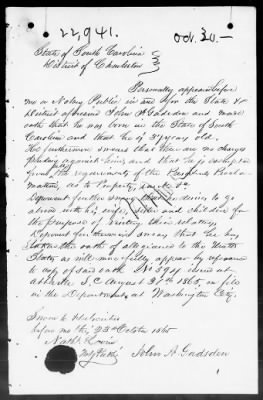 22,941. Oct. 30.—
State of South Carolina
District of Charleston
Personally appears before
me a Notary Public in and for the State &
District aforesaid John A Gadsden and made
oath that he was born in the State of South
Carolina and that he is 34 years old.
He furthermore swears that there are no charges
pending against him and that he is exempt
from the requirements of the Presidents Procla-
mation, as to Property, rank &c
Deponent further swears that he desires to go
abroad with his wife, and children for
the purpose of visiting their relatives
Deponent furthermore swears that he has
taken the oath of allegiance to the United
States as will more fully appear by reference
to copy of said oath No 394 sworn at
S.C. August 31st 1865, on file
in the Department at Washington City.
Sworn to & subscribed
before me this 23d October 1865
Nath Levin
Not. Public
John A. Gadsden